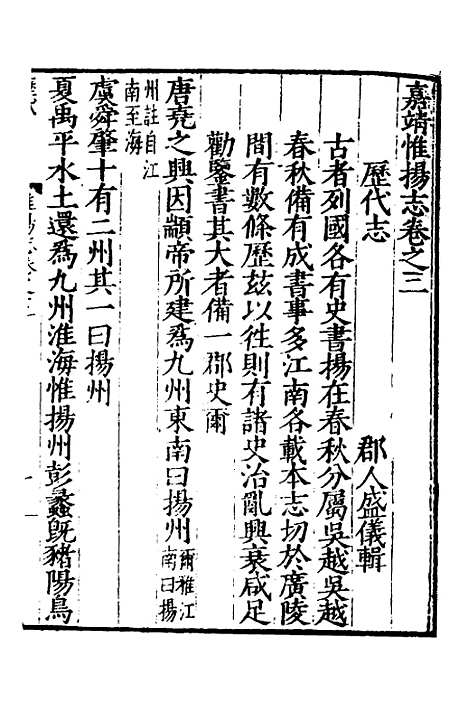 嘉靖惟揚志卷之三
歷代志
郡人盛儀輯
古者列國各有史書揚在春秋分屬吳越吳越
春秋備有成書事多江南各載本志切於廣陵
間有數條歷玆以徃則有諸史治亂興衰咸足
勸鑒書其大者備一郡史爾
唐堯之興因顓帝所建爲九州東南曰揚州爾雅江南曰揚
州註自江南至海
虞舜肇十有二州其一曰揚州
夏禹平水土還爲九州淮海惟揚州彭蠡旣豬陽鳥